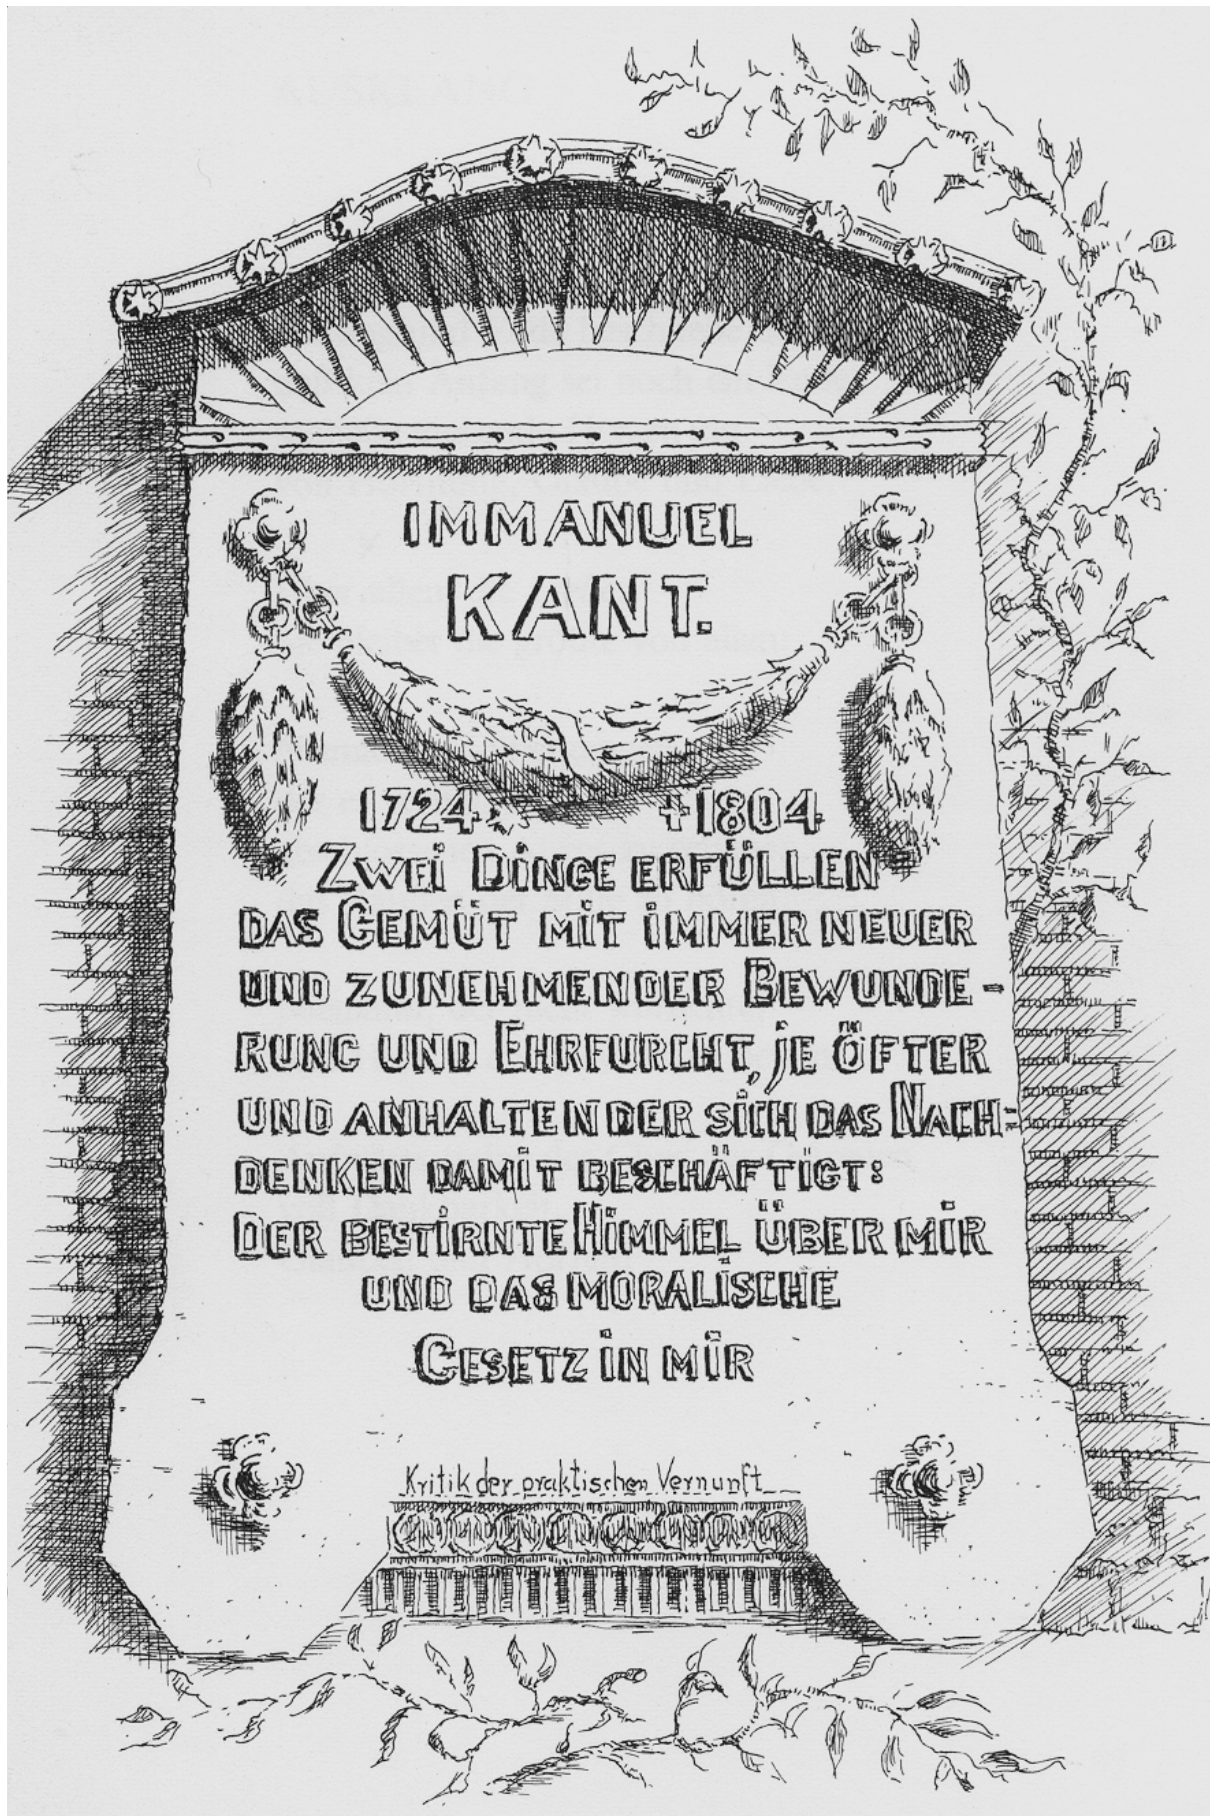 IMMANUEL
KANT.
1724 +1804
ZWEI DINGE ERFÜLLEN
DAS GEMÜT MIT IMMER NEUER
UND ZUNEHMENDER BEWUNDE-
RUNG UND EHRFURCHT, JE ÖFTER
UND ANHALTENDER SICH DAS NACH-
DENKEN DAMIT BESCHÄFTIGT:
DER BESTIRNTE HIMMEL ÜBER MIR
UND DAS MORALISCHE
GESETZ IN MIR
Kritik der praktischen Vernunft